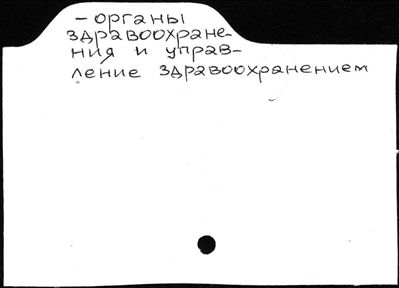 - органы
здравоохране-
ния и управ-
ление здравоохранением